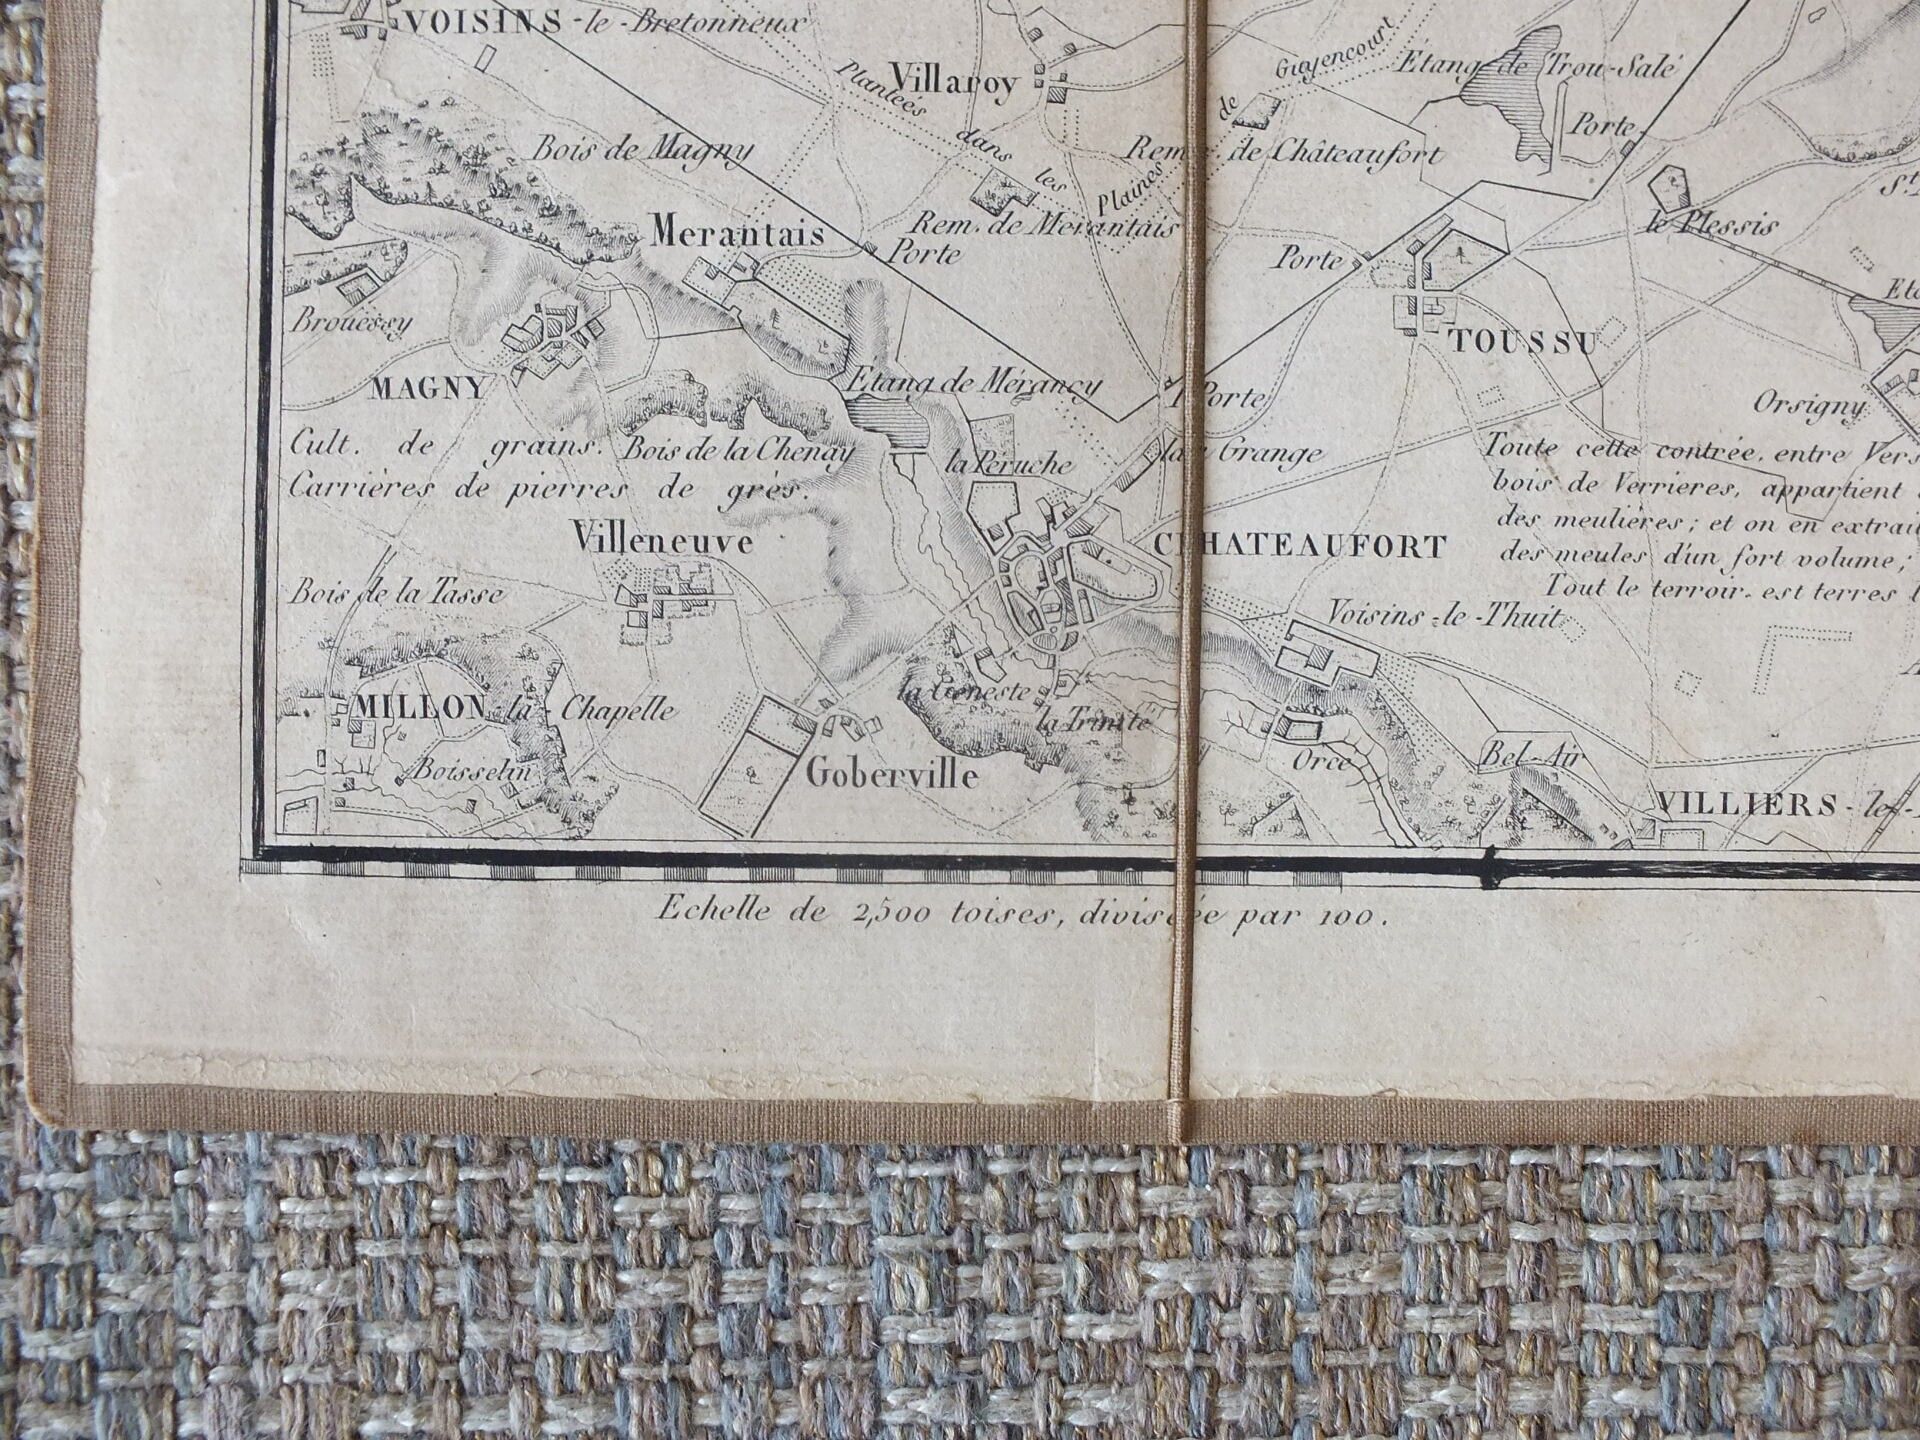 VOISINS - le - Bretonneux
Villaroy
Plantées dans les Plaines de Guyencourt
Étang de Trou-Salé
Porte
Bois de Magny
Rem. de Châteaufort
Merantais
Rem. de Merantais
Porte
Porte
le Plessis
St
Eta
Brouessy
TOUSSU
MAGNY
Étang de Mérancy
Porte
Orsigny
Cult. de grains.
Bois de la Chenay
la Péruche
la Grange
Carrières de pierres de grès.
Toute cette contrée, entre Vers
bois de Verrieres, appartient
des meulières; et on en extrait
des meules d'un fort volume;
Tout le terroir est terres
Villeneuve
CHATEAUFORT
Bois de la Tasse
Voisins - le - Thuit
MILLON - la - Chapelle
la Geneste
la Trinité
Boisselin
Goberville
Orce
Bel-Air
VILLIERS - le -
Echelle de 2,500 toises, divisée par 100.